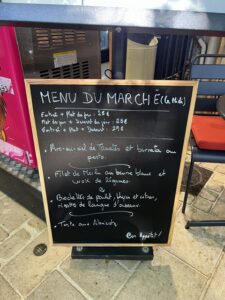 MENU DU MARCHÉ (Ce Midi)
Entrée + Plat du jour : 25€
Plat du jour + Dessert du jour : 25€
Entrée + Plat + Dessert : 29€
Arc-en-ciel de Tomates et burrata au
pesto
Filet de au beurre blanc et
wok de légumes
de poulet, et citron,
risotto de langue d'oiseau
Tarte aux Abricots
Bon Appétit!